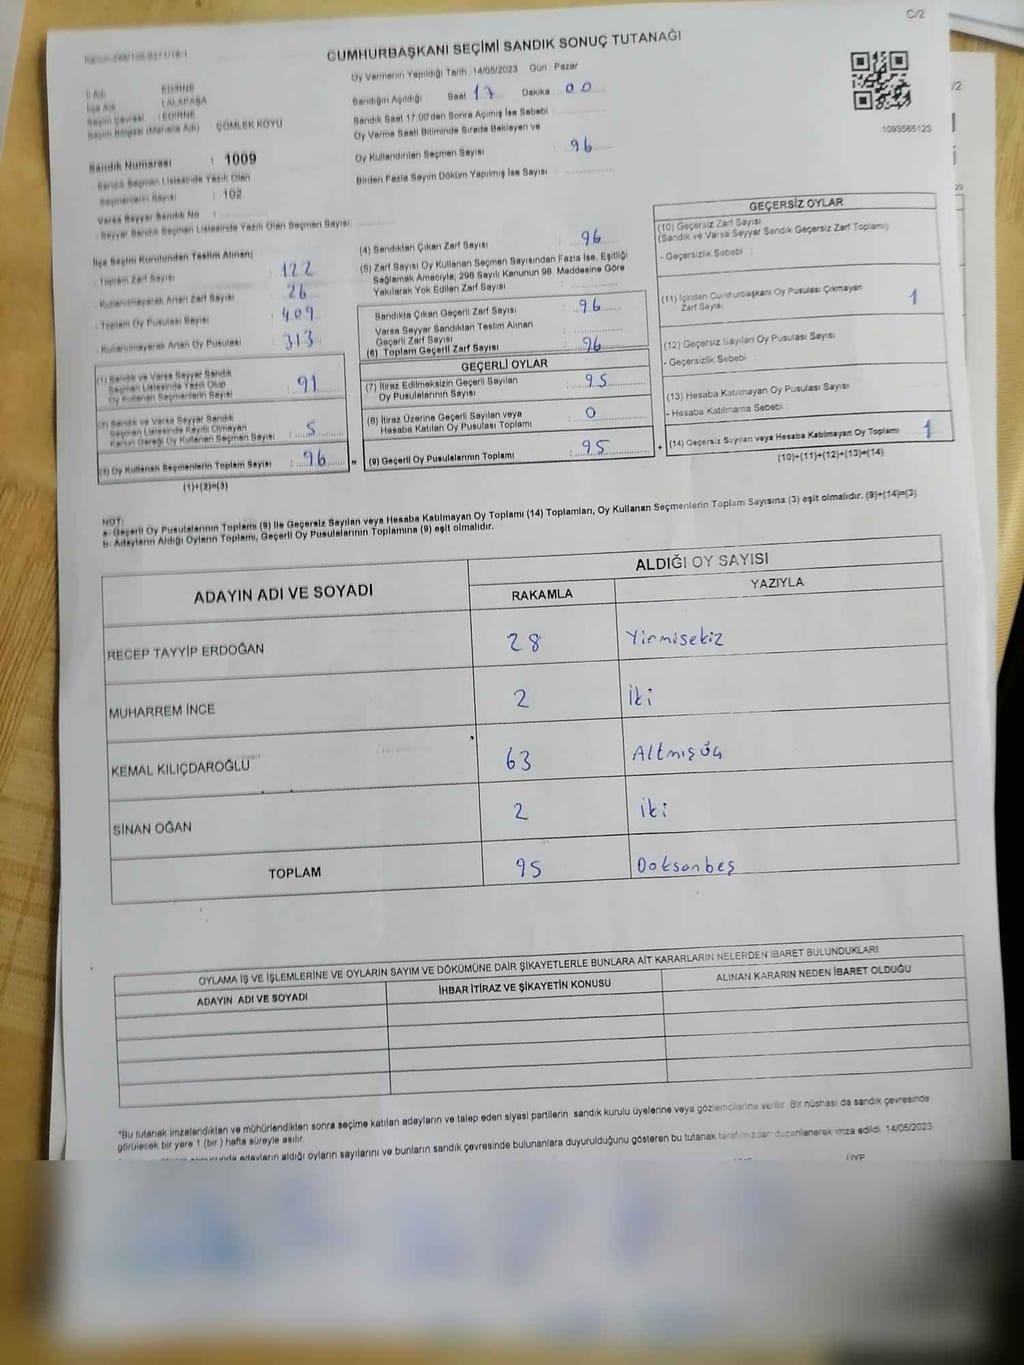 C/2
CUMHURBAŞKANI SEÇİMİ SANDIK SONUÇ TUTANAĞI
Oy Vermenin Yapıldığı Tarih 14/05/2023 Gün Pazar
İl Adı : EDİRNE
İlçe Adı : LALAPAŞA
Seçim Çevresi : EDİRNE
Seçim Bölgesi (Mahalle Adı) : ÇÖMLEK KÖYÜ
Sandığın Açıldığı Saat 17 Dakika 00
Sandık Saat 17.00'dan Sonra Açımış İse Sebebi
Oy Verme Saati Bitiminde Sırada Bekleyen ve
Oy Kullandırılan Seçmen Sayısı : 96
Birden Fazla Sayım Döküm Yapılmış İse Sayısı :
1093565123
Sandık Numarası : 1009
- Sandık Seçmen Listesinde Yazılı Olan
Seçmenlerin Sayısı : 102
Varsa Seyyar Sandık No :
- Seyyar Sandık Seçmen Listesinde Yazılı Olan Seçmen Sayısı:
İlçe Seçim Kurulundan Teslim Alınan;
- Toplam Zarf Sayısı : 122
- Kullanılmayarak Artan Zarf Sayısı : 26
- Toplam Oy Pusulası Sayısı : 409
- Kullanılmayarak Artan Oy Pusulası : 313
(1) Sandık ve Varsa Seyyar Sandık
Seçmen Listesinde Yazılı Olup
Oy Kullanan Seçmenlerin Sayısı : 91
(2) Sandık ve Varsa Seyyar Sandık
Seçmen Listesinde Kayıtlı Olmayan
Kanun Gereği Oy Kullanan Seçmen Sayısı : 5
(3) Oy Kullanan Seçmenlerin Toplam Sayısı : 96
(1)+(2)=(3)
(4) Sandıktan Çıkan Zarf Sayısı : 96
(5) Zarf Sayısı Oy Kullanan Seçmen Sayısından Fazla İse, Eşitliği
Sağlamak Amacıyla; 298 Sayılı Kanunun 98. Maddesine Göre
Yakılarak Yok Edilen Zarf Sayısı :
Sandıkta Çıkan Geçerli Zarf Sayısı : 96
Varsa Seyyar Sandıktan Teslim Alınan
Geçerli Zarf Sayısı :
(6) Toplam Geçerli Zarf Sayısı : 96
GEÇERLİ OYLAR
(7) İtiraz Edilmeksizin Geçerli Sayılan
Oy Pusulalarının Sayısı : 95
(8) İtiraz Üzerine Geçerli Sayılan veya
Hesaba Katılan Oy Pusulası Toplamı : 0
= (9) Geçerli Oy Pusulalarının Toplamı : 95
GEÇERSİZ OYLAR
(10) Geçersiz Zarf Sayısı
(Sandık ve Varsa Seyyar Sandık Geçersiz Zarf Toplamı)
- Geçersizlik Sebebi :
(11) İçinden Cumhurbaşkanı Oy Pusulası Çıkmayan
Zarf Sayısı 1
(12) Geçersiz Sayılan Oy Pusulası Sayısı
- Geçersizlik Sebebi :
(13) Hesaba Katılmayan Oy Pusulası Sayısı
- Hesaba Katılmama Sebebi :
+ (14) Geçersiz Sayılan veya Hesaba Katılmayan Oy Toplamı 1
(10)+(11)+(12)+(13)=(14)
NOT:
a- Geçerli Oy Pusulalarının Toplamı (9) ile Geçersiz Sayılan veya Hesaba Katılmayan Oy Toplamı (14) Toplamları, Oy Kullanan Seçmenlerin Toplam Sayısına (3) eşit olmalıdır. (9)+(14)=(3)
b- Adayların Aldığı Oyların Toplamı, Geçerli Oy Pusulalarının Toplamına (9) eşit olmalıdır.
ADAYIN ADI VE SOYADI
ALDIĞI OY SAYISI
RAKAMLA YAZIYLA
RECEP TAYYİP ERDOĞAN 28 Yirmisekiz
MUHARREM İNCE 2 İki
KEMAL KILIÇDAROĞLU 63 Altmışüç
SİNAN OĞAN 2 iki
TOPLAM 95 Doksanbeş
OYLAMA İŞ VE İŞLEMLERİNE VE OYLARIN SAYIM VE DÖKÜMÜNE DAİR ŞİKAYETLERLE BUNLARA AİT KARARLARIN NELERDEN İBARET BULUNDUKLARI
ADAYIN ADI VE SOYADI İHBAR İTİRAZ VE ŞİKAYETİN KONUSU ALINAN KARARIN NEDEN İBARET OLDUĞU
*Bu tutanak imzalandıktan ve mühürlendikten sonra seçime katılan adayların ve talep eden siyasi partilerin sandık kurulu üyelerine veya gözlemcilerine verilir. Bir nüshası da sandık çevresinde
görülecek bir yere 1 (bir) hafta süreyle asılır.
adayların aldığı oyların sayılarını ve bunların sandık çevresinde bulunanlara duyurulduğunu gösteren bu tutanak tarafımızdan düzenlenerek imza edildi. 14/05/2023